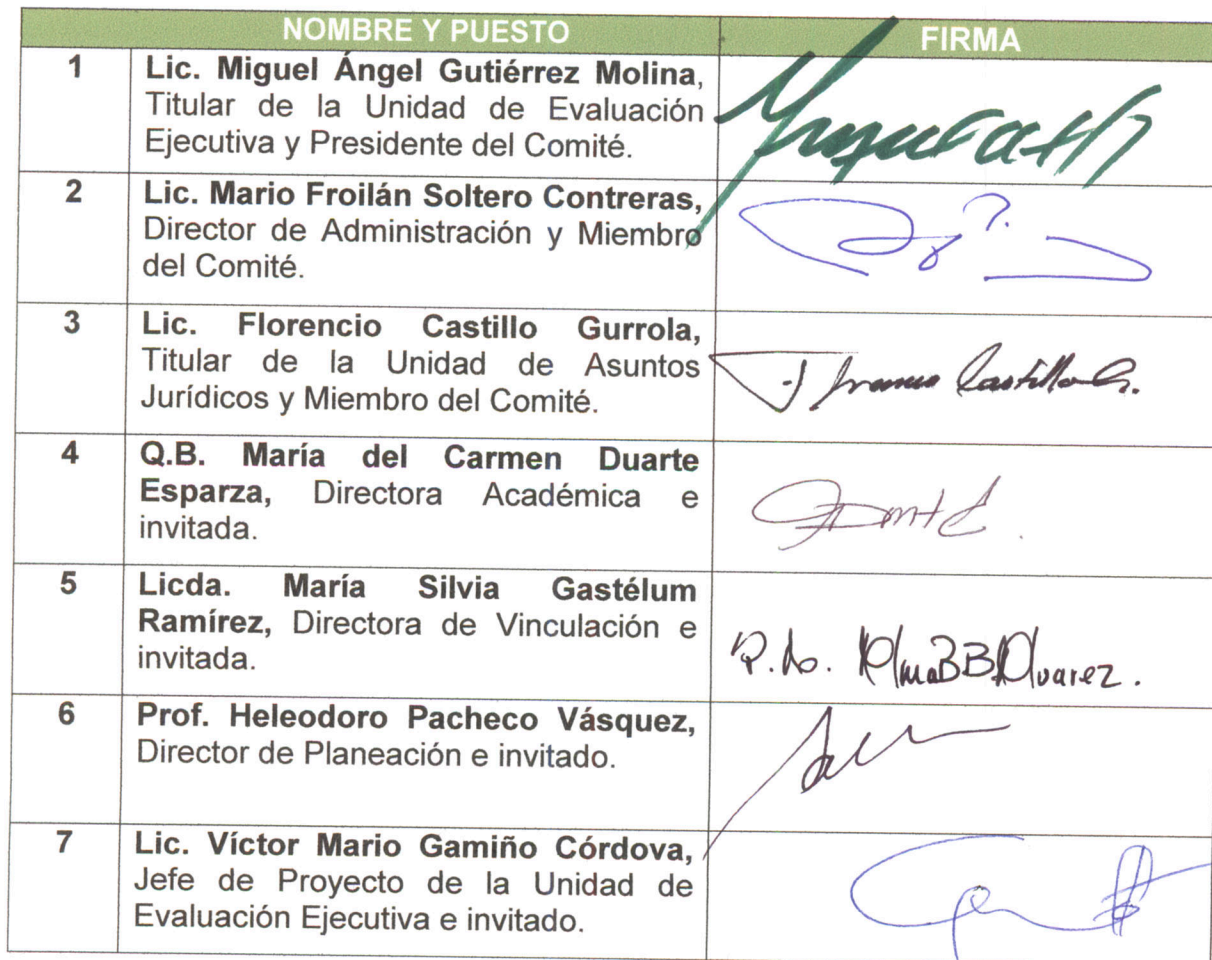 NOMBRE Y PUESTO FIRMA
1 Lic. Miguel Ángel Gutiérrez Molina,
Titular de la Unidad de Evaluación
Ejecutiva y Presidente del Comité.
2 Lic. Mario Froilán Soltero Contreras,
Director de Administración y Miembro
del Comité.
3 Lic. Florencio Castillo Gurrola,
Titular de la Unidad de Asuntos
Jurídicos y Miembro del Comité.
Castillo G.
4 Q.B. María del Carmen Duarte
Esparza, Directora Académica e
invitada.
5 Licda. María Silvia Gastélum
Ramírez, Directora de Vinculación e
invitada.
Alvarez.
6 Prof. Heleodoro Pacheco Vásquez,
Director de Planeación e invitado.
7 Lic. Víctor Mario Gamiño Córdova,
Jefe de Proyecto de la Unidad de
Evaluación Ejecutiva e invitado.